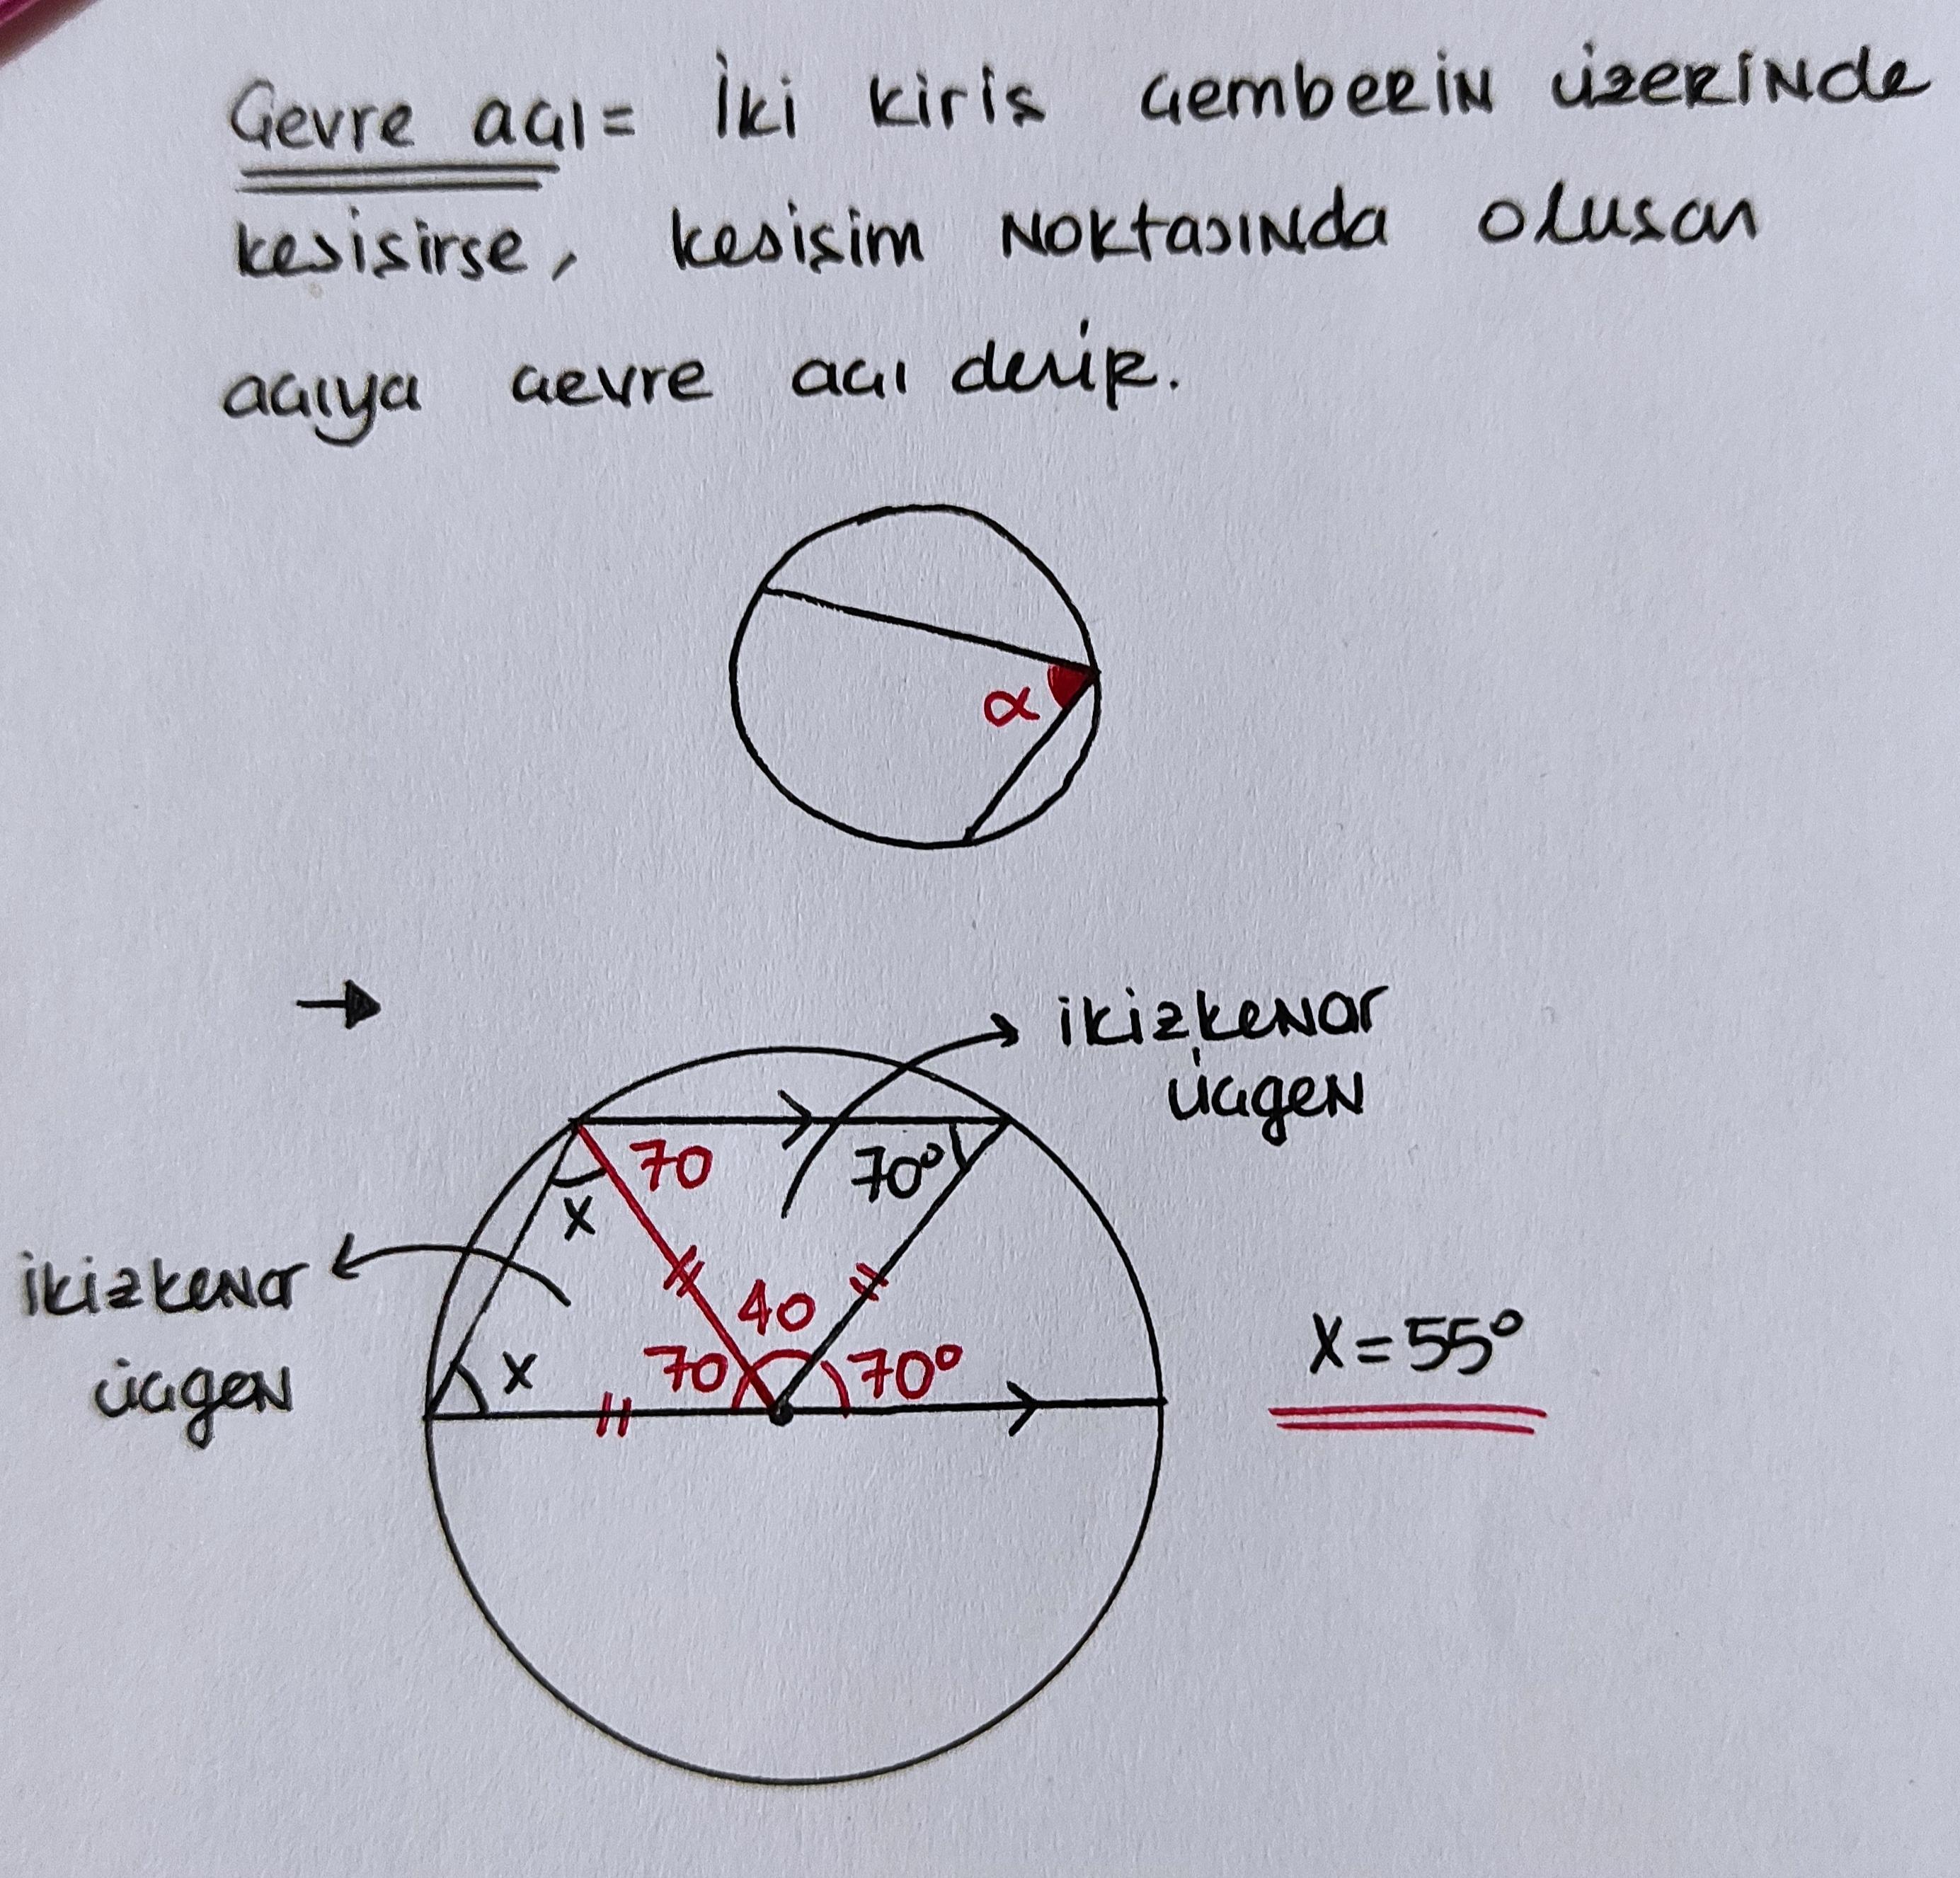 Çevre açı = İki kiriş çemberin üzerinde
kesişirse, kesişim noktasında oluşan
açıya çevre açı denir.
α
ikizkenar
üçgen
70
70°
x
ikizkenar
üçgen
40
x
70
70°
x = 55°